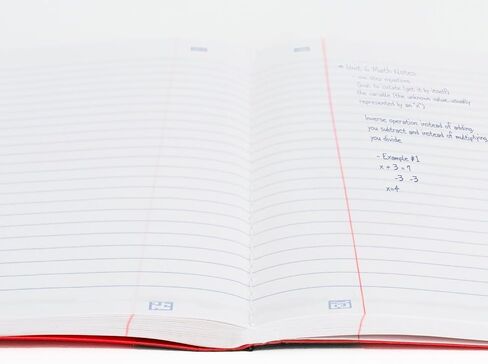 Unit 6 Math Notes
- one step equations
Goal: to isolate (get it by itself)
the variable (the unknown value, usually
represented by an "x")
Inverse operation instead of adding
you subtract and instead of multiplying
you divide
- Example #1
x + 3 = 7
-3 -3
x=4